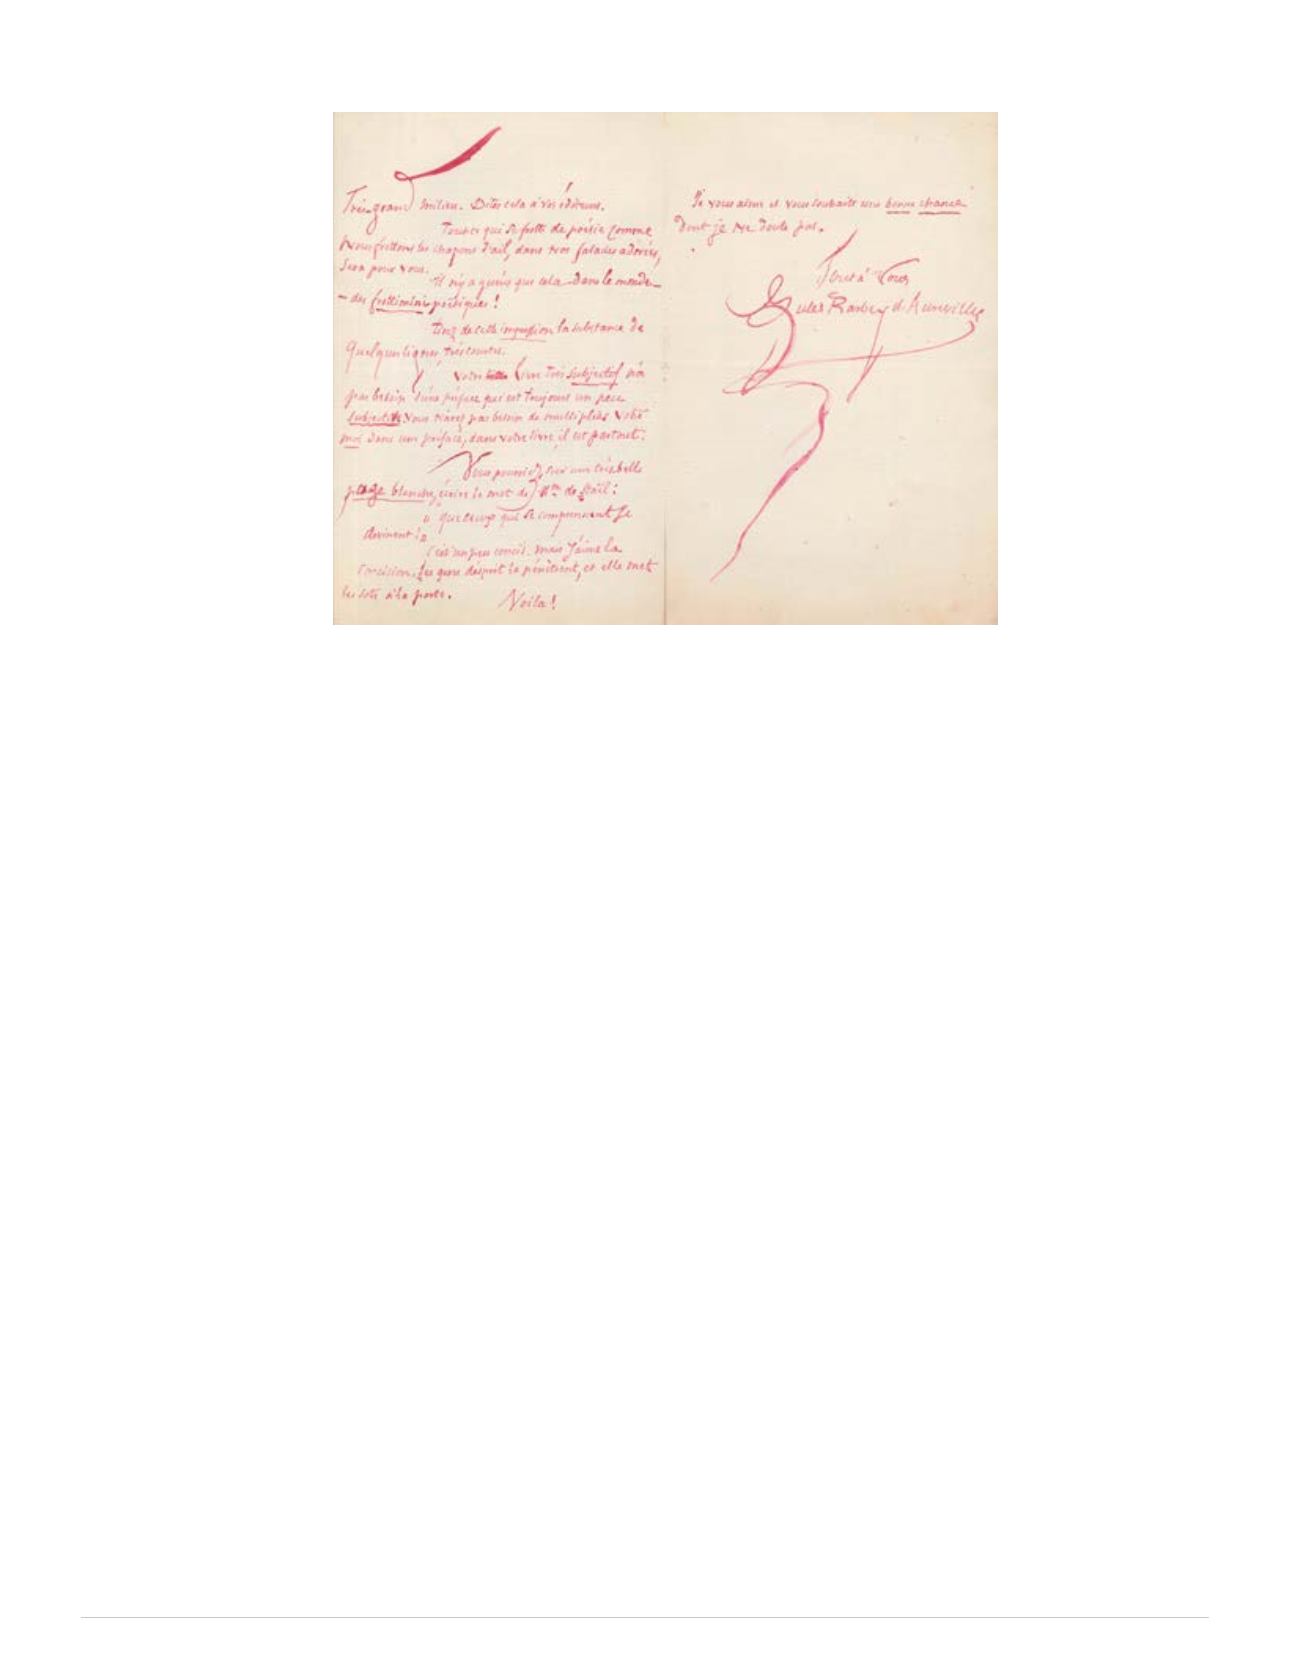 Très-grand milieu. Dites cela à vos éditeurs.
Tout ce qui se frotte de poésie comme
nous frottons les chapons d'ail, dans nos salades adorées,
sera pour vous.
Il n'y a guères que cela dans le monde –
– des frottions poétiques !
Tirez de cette impression la substance de
quelques lignes très courtes.
Votre livre très subjectif n'a
pas besoin d'une préface qui est toujours un peu
subjective. Vous n'avez pas besoin de multiplier votre
moi dans une préface, dans votre livre, il est partout.
Vous pourriez, sur une très belle
page blanche, écrire le mot de Mme de Staël :
" que ceux qui se comprennent se
devinent ! "
C'est un peu concis. mais j'aime la
concision. Les gens d'esprit la pénètrent, et elle met
les sots à la porte.
Voila !
Je vous aime et vous souhaite une bonne chance
dont je ne doute pas.
Tout à Vous
Jules Barbey d'Aurevilly